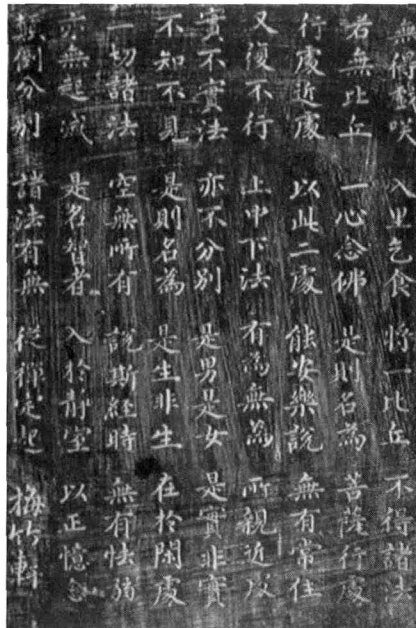 無得戲咲 入里乞食 將一比丘 不得諸法
若無比丘 一心念佛 是則名為 菩薩行處
行處近處 以此二處 能安樂說 無有常住
又復不行 上中下法 有為無為 所親近處
實不實法 亦不分別 是男是女 是實非實
不知不見 是則名為 是生非生 在於閑處
一切諸法 空無所有 說斯經時 無有怯弱
亦無起滅 是名智者 入於靜室 以正憶念
顛倒分別 諸法有無 從禪定起 梅竹軒